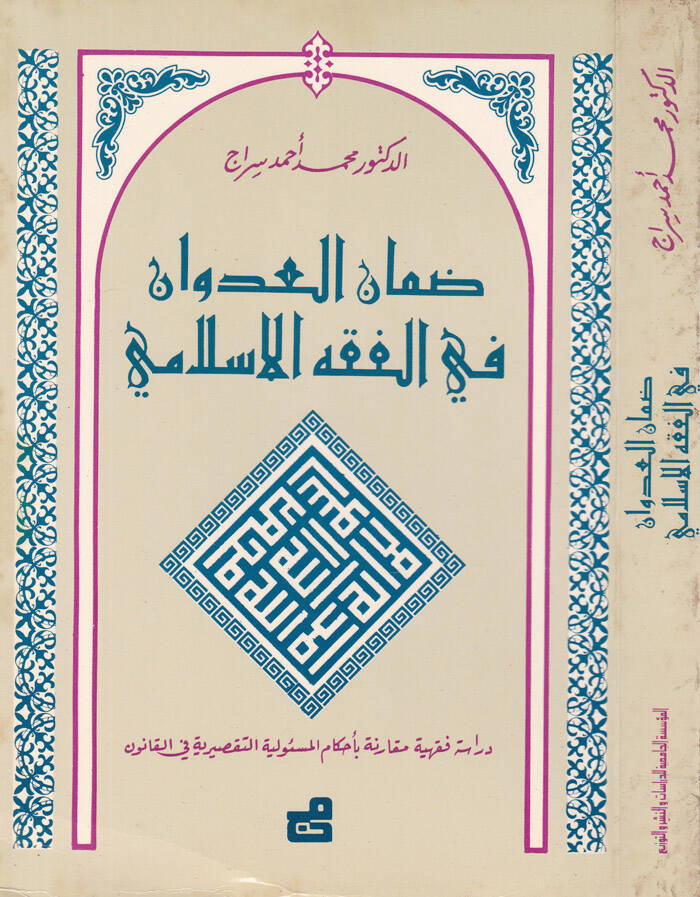 الدكتور محمد أحمد سراج
ضمان العدوان
في الفقه الإسلامي
لا إله إلا الله محمد رسول الله
دراسة فقهية مقارنة بأحكام المسئولية التقصيرية في القانون
مج
الدكتور محمد أحمد سراج
ضمان العدوان
في الفقه الإسلامي
المؤسسة الجامعية للدراسات والنشر والتوزيع